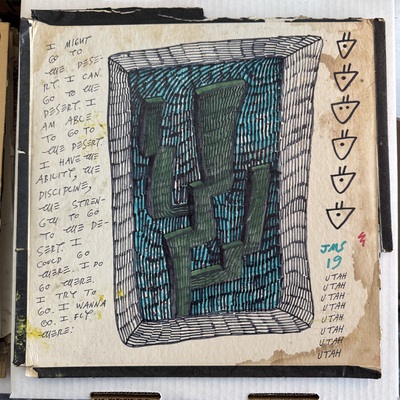 I MIGHT
GO TO
THE DESE-
RT. I CAN
GO TO THE
DESERT. I
AM ABLE
TO GO TO
THE DESERT.
I HAVE THE
ABILITY, THE
DISCIPLINE,
THE STREN-
GTH TO GO
TO THE DE-
SERT. I
COULD GO
THERE. I DO
GO THERE.
I TRY TO
GO. I WANNA
GO. I FLY
THERE:
JMS
19
UTAH
UTAH
UTAH
UTAH
UTAH
UTAH
UTAH
UTAH